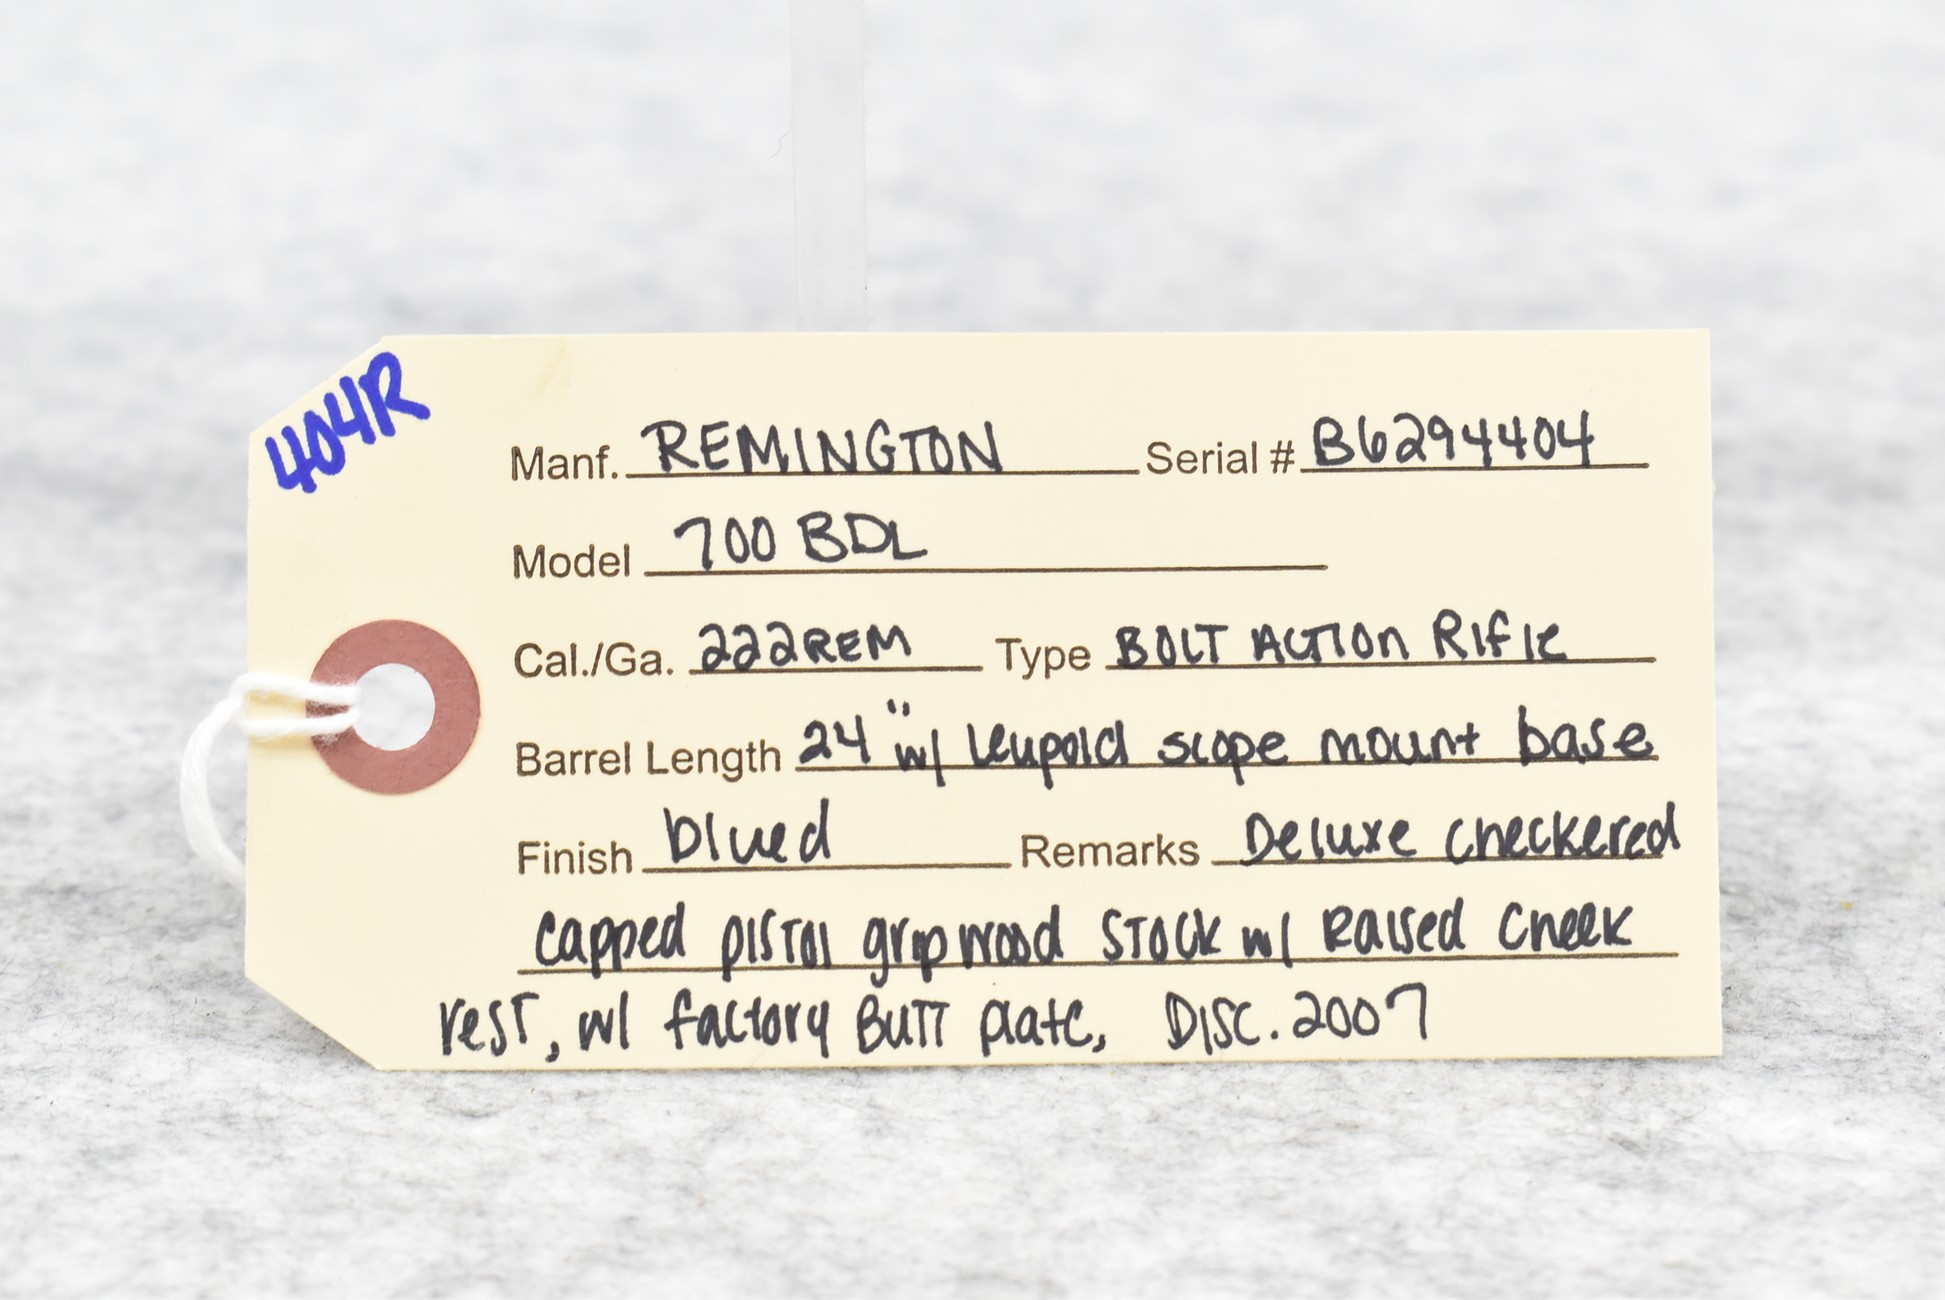 404R
Manf. REMINGTON Serial # B6294404
Model 700 BDL
Cal./Ga. 222REM Type BOLT ACTION RIFle
Barrel Length 24" w/ leupold scope mount base
Finish blued Remarks Deluxe checkered
capped pistol grip wood STOCK w/ Raised cheek
rest, w/ factory Butt plate, DISC. 2007